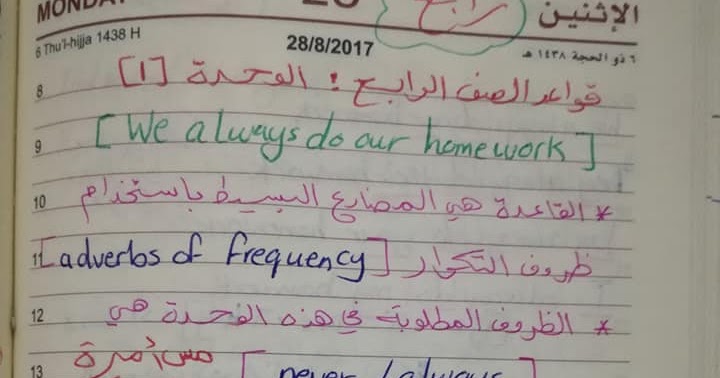 MONDAY الإثنين
رابع
6 Thu'l-hijja 1438 H 28/8/2017 ٦ ذو الحجة ١٤٣٨ هـ
8 قواعد الصف الرابع : الوحدة [1]
9 [We always do our homework]
10 * القاعدة هي المضارع البسيط باستخدام
11 ظروف التكرار [adverbs of frequency]
12 * الظروف المطلوبة في هذه الوحدة هي
13 [never / always] مس أميرة